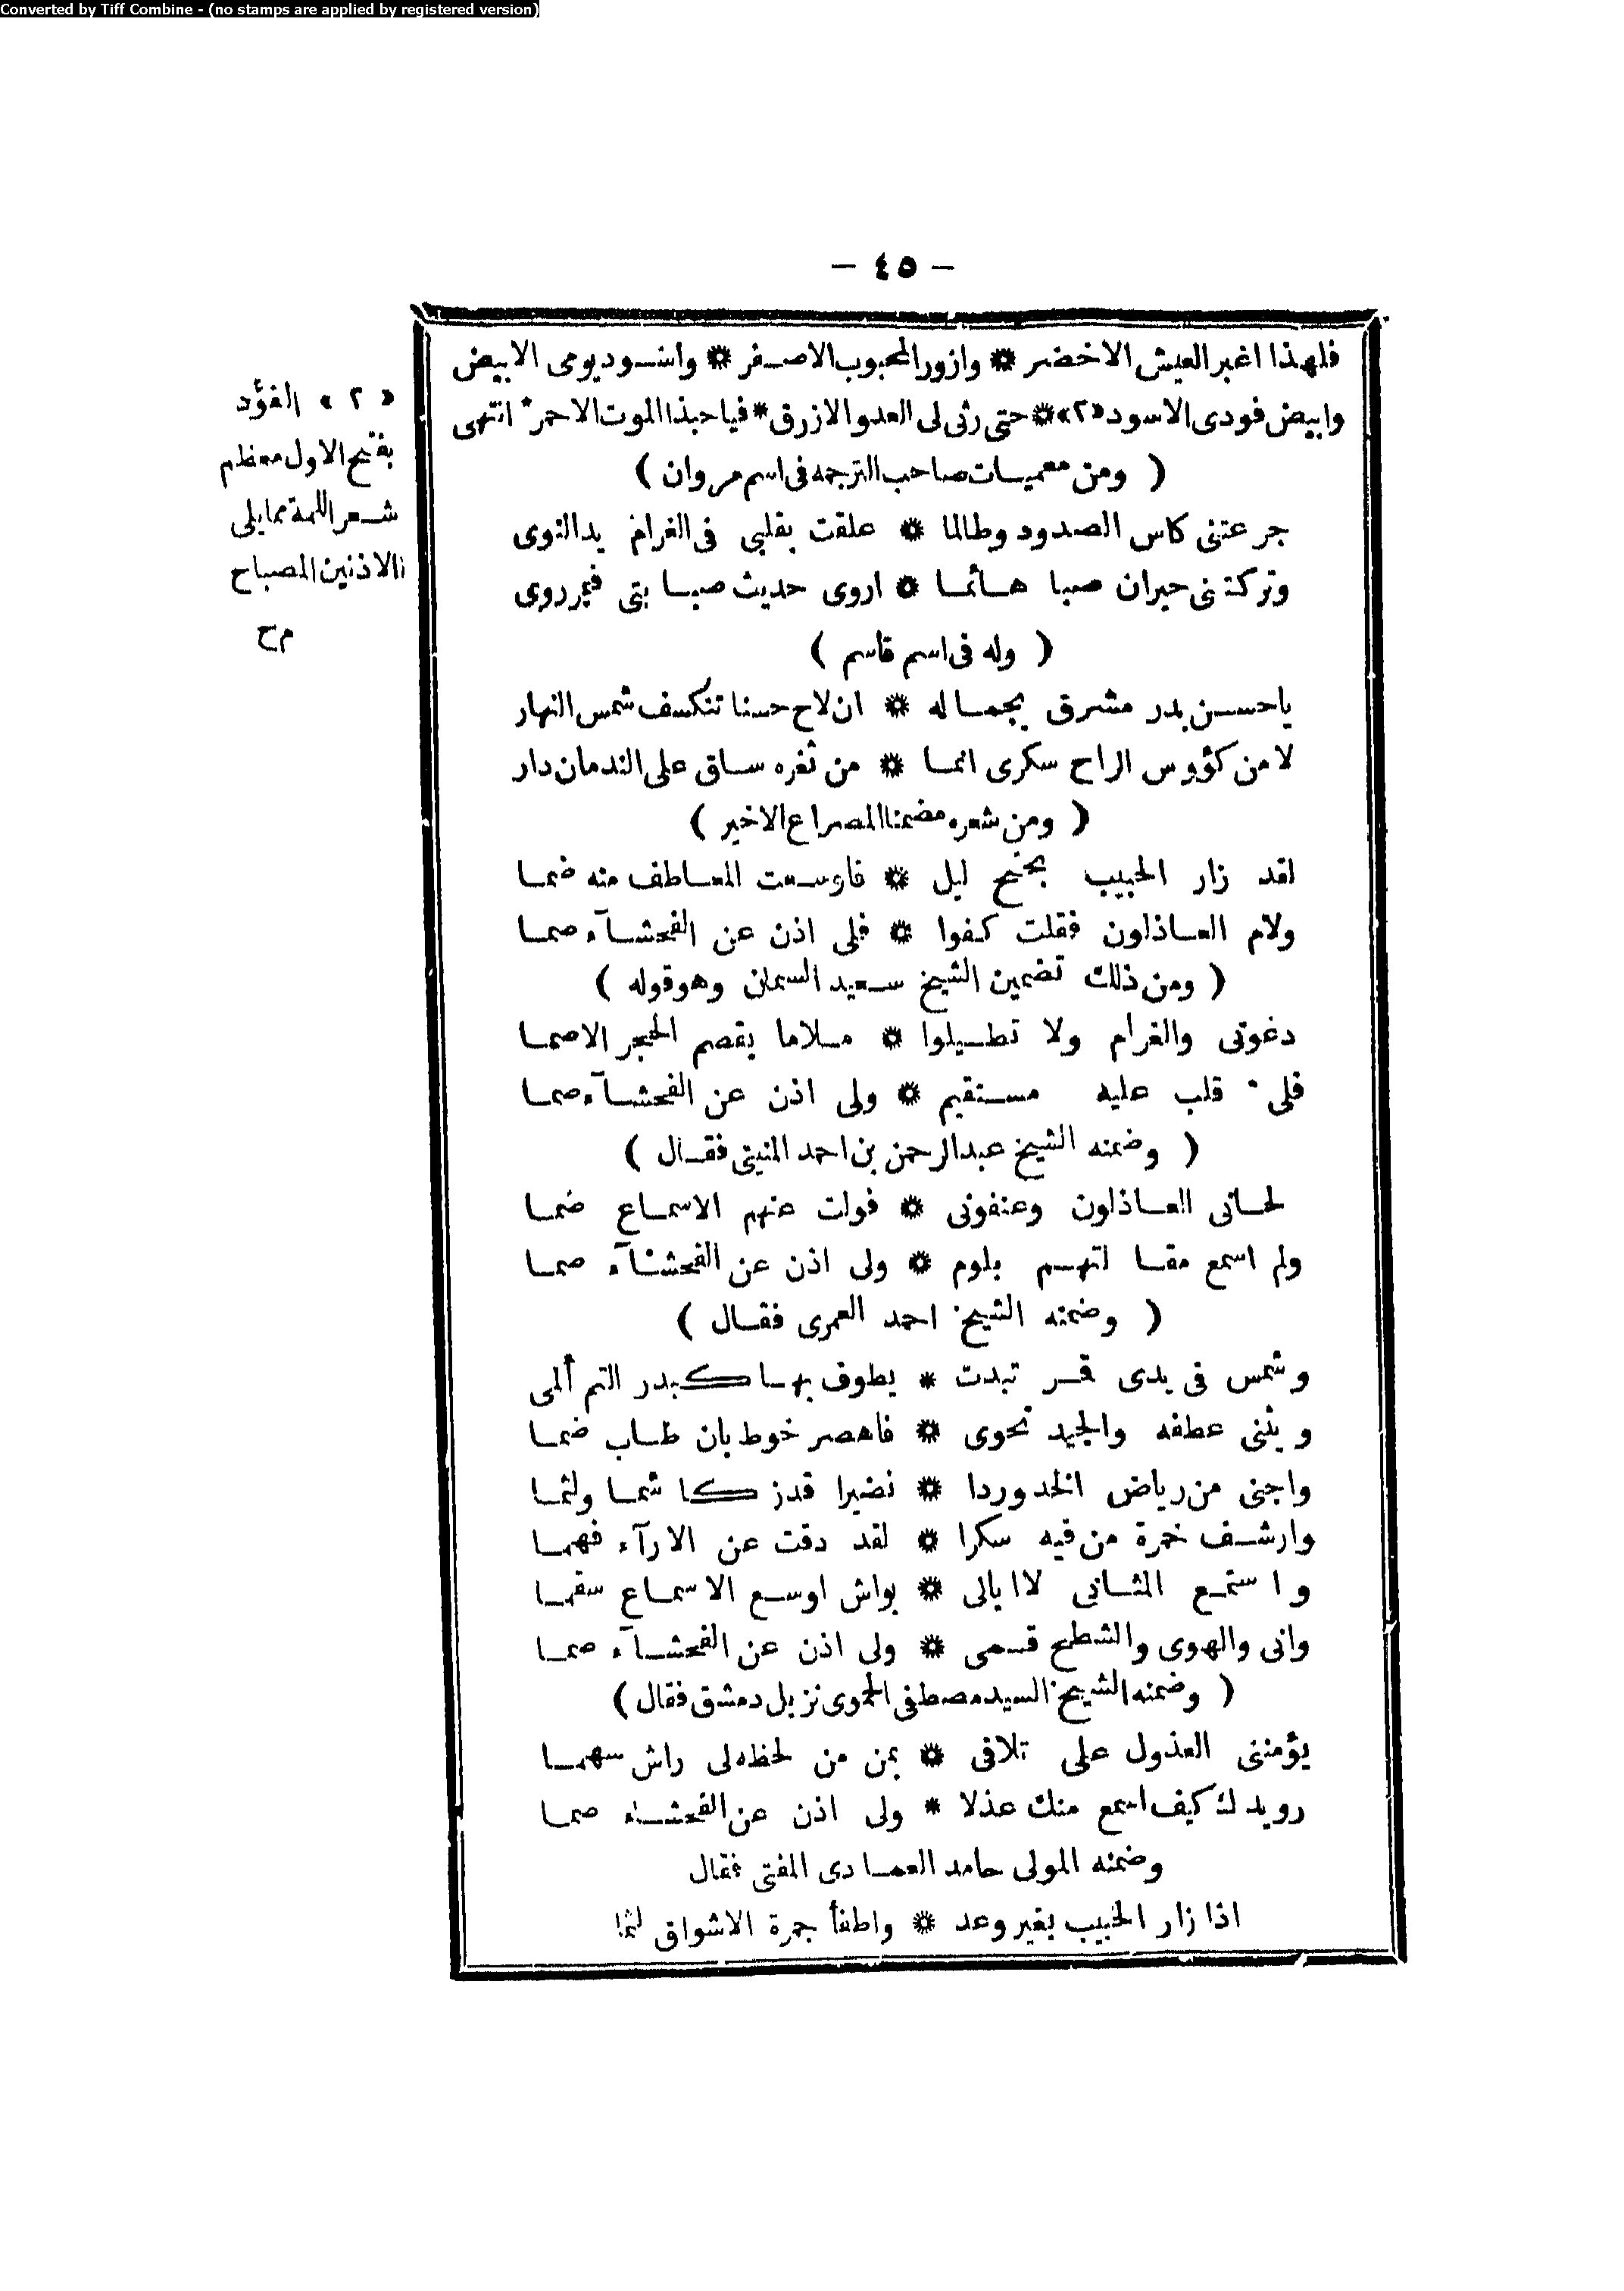 Converted by Tiff Combine - (no stamps are applied by registered version)
— ٤٥ —
فلهذا اغبر العيش الاخضر * وازور المحبوب الاصفر * واسود يومى الابيض
وابيض فودى الاسود «٢» * حتى رثى لى العدو الازرق * فياحبذا الموت الاحمر * انتهى
( ومن معميات صاحب الترجمه فى اسم مروان )
جرعتنى كاس الصدود وطالما * علقت بقلبى فى الغرام يد النوى
وتركتنى حيران صبا هائما * اروى حديث صبابتى فيمن روى
( وله فى اسم قاسم )
ياحسن بدر مشرق بجماله * ان لاح حسنا تنكسف شمس النهار
لامن كؤوس الراح سكرى انما * من ثغره ساق على الندمان دار
( ومن شعره مضمنا المصراع الاخير )
لقد زار الحبيب بجنح ليل * فاوسعت المعاطف منه ضما
ولام العاذلون فقلت كفوا * فلى اذن عن الفحشآء صما
( ومن ذلك تضمين الشيخ سعيد السمان وهو قوله )
دعونى والغرام ولا تطيلوا * ملاما يقصم الحجر الاصما
فلى قلب عليه مستقيم * ولى اذن عن الفحشآء صما
( وضمنه الشيخ عبدالرحمن بن احمد المنينى فقال )
لحانى العاذلون وعنفونى * فولت عنهم الاسماع ضما
ولم اسمع مقا لتهم بلوم * ولى اذن عن الفحشآء صما
( وضمنه الشيخ احمد العمرى فقال )
وشمس فى يدى قمر تبدت * يطوف بها كبدر التم ألمى
ويثنى عطفه والجيد نحوى * فاهصر خوط بان طاب ضما
واجنى من رياض الخد وردا * نضيرا قدزكا شما ولثما
وارشف خمرة من فيه سكرا * لقد دقت عن الارآء فهما
واستمع المثانى لاابالى * بواش اوسع الاسماع سقما
وانى والهوى والشطح قسمى * ولى اذن عن الفحشآء صما
( وضمنه الشيخ السيد مصطفى الحموى نزيل دمشق فقال )
يؤمننى العذول على تلافى * بمن من لحظه لى راش سهما
رويدك كيف اسمع منك عذلا * ولى اذن عن الفحشاء صما
وضمنه المولى حامد العمادى المفتى فقال
اذا زار الحبيب بغير وعد * واطفأ جمرة الاشواق لثما
«٢» الفؤد
بفتح الاول معظم
شعر اللمة مما يلى
الاذنين المصباح
م ح